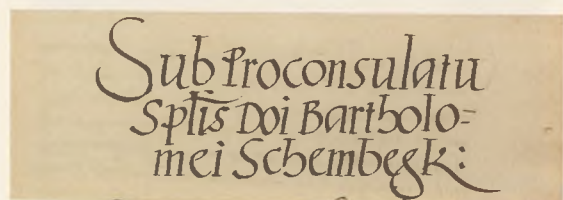 Sub Proconsulatu
Sptīs Doi Bartholo=
mei Schembegk: